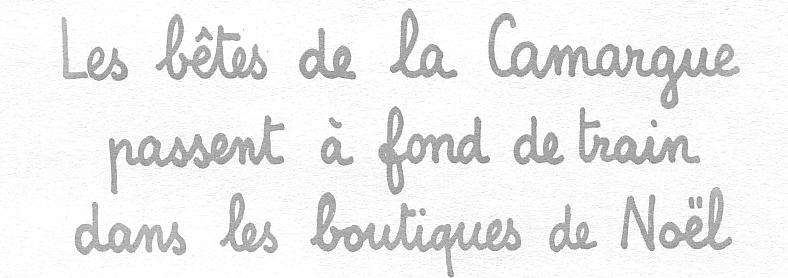 Les bêtes de la Camargue
passent à fond de train
dans les boutiques de Noël